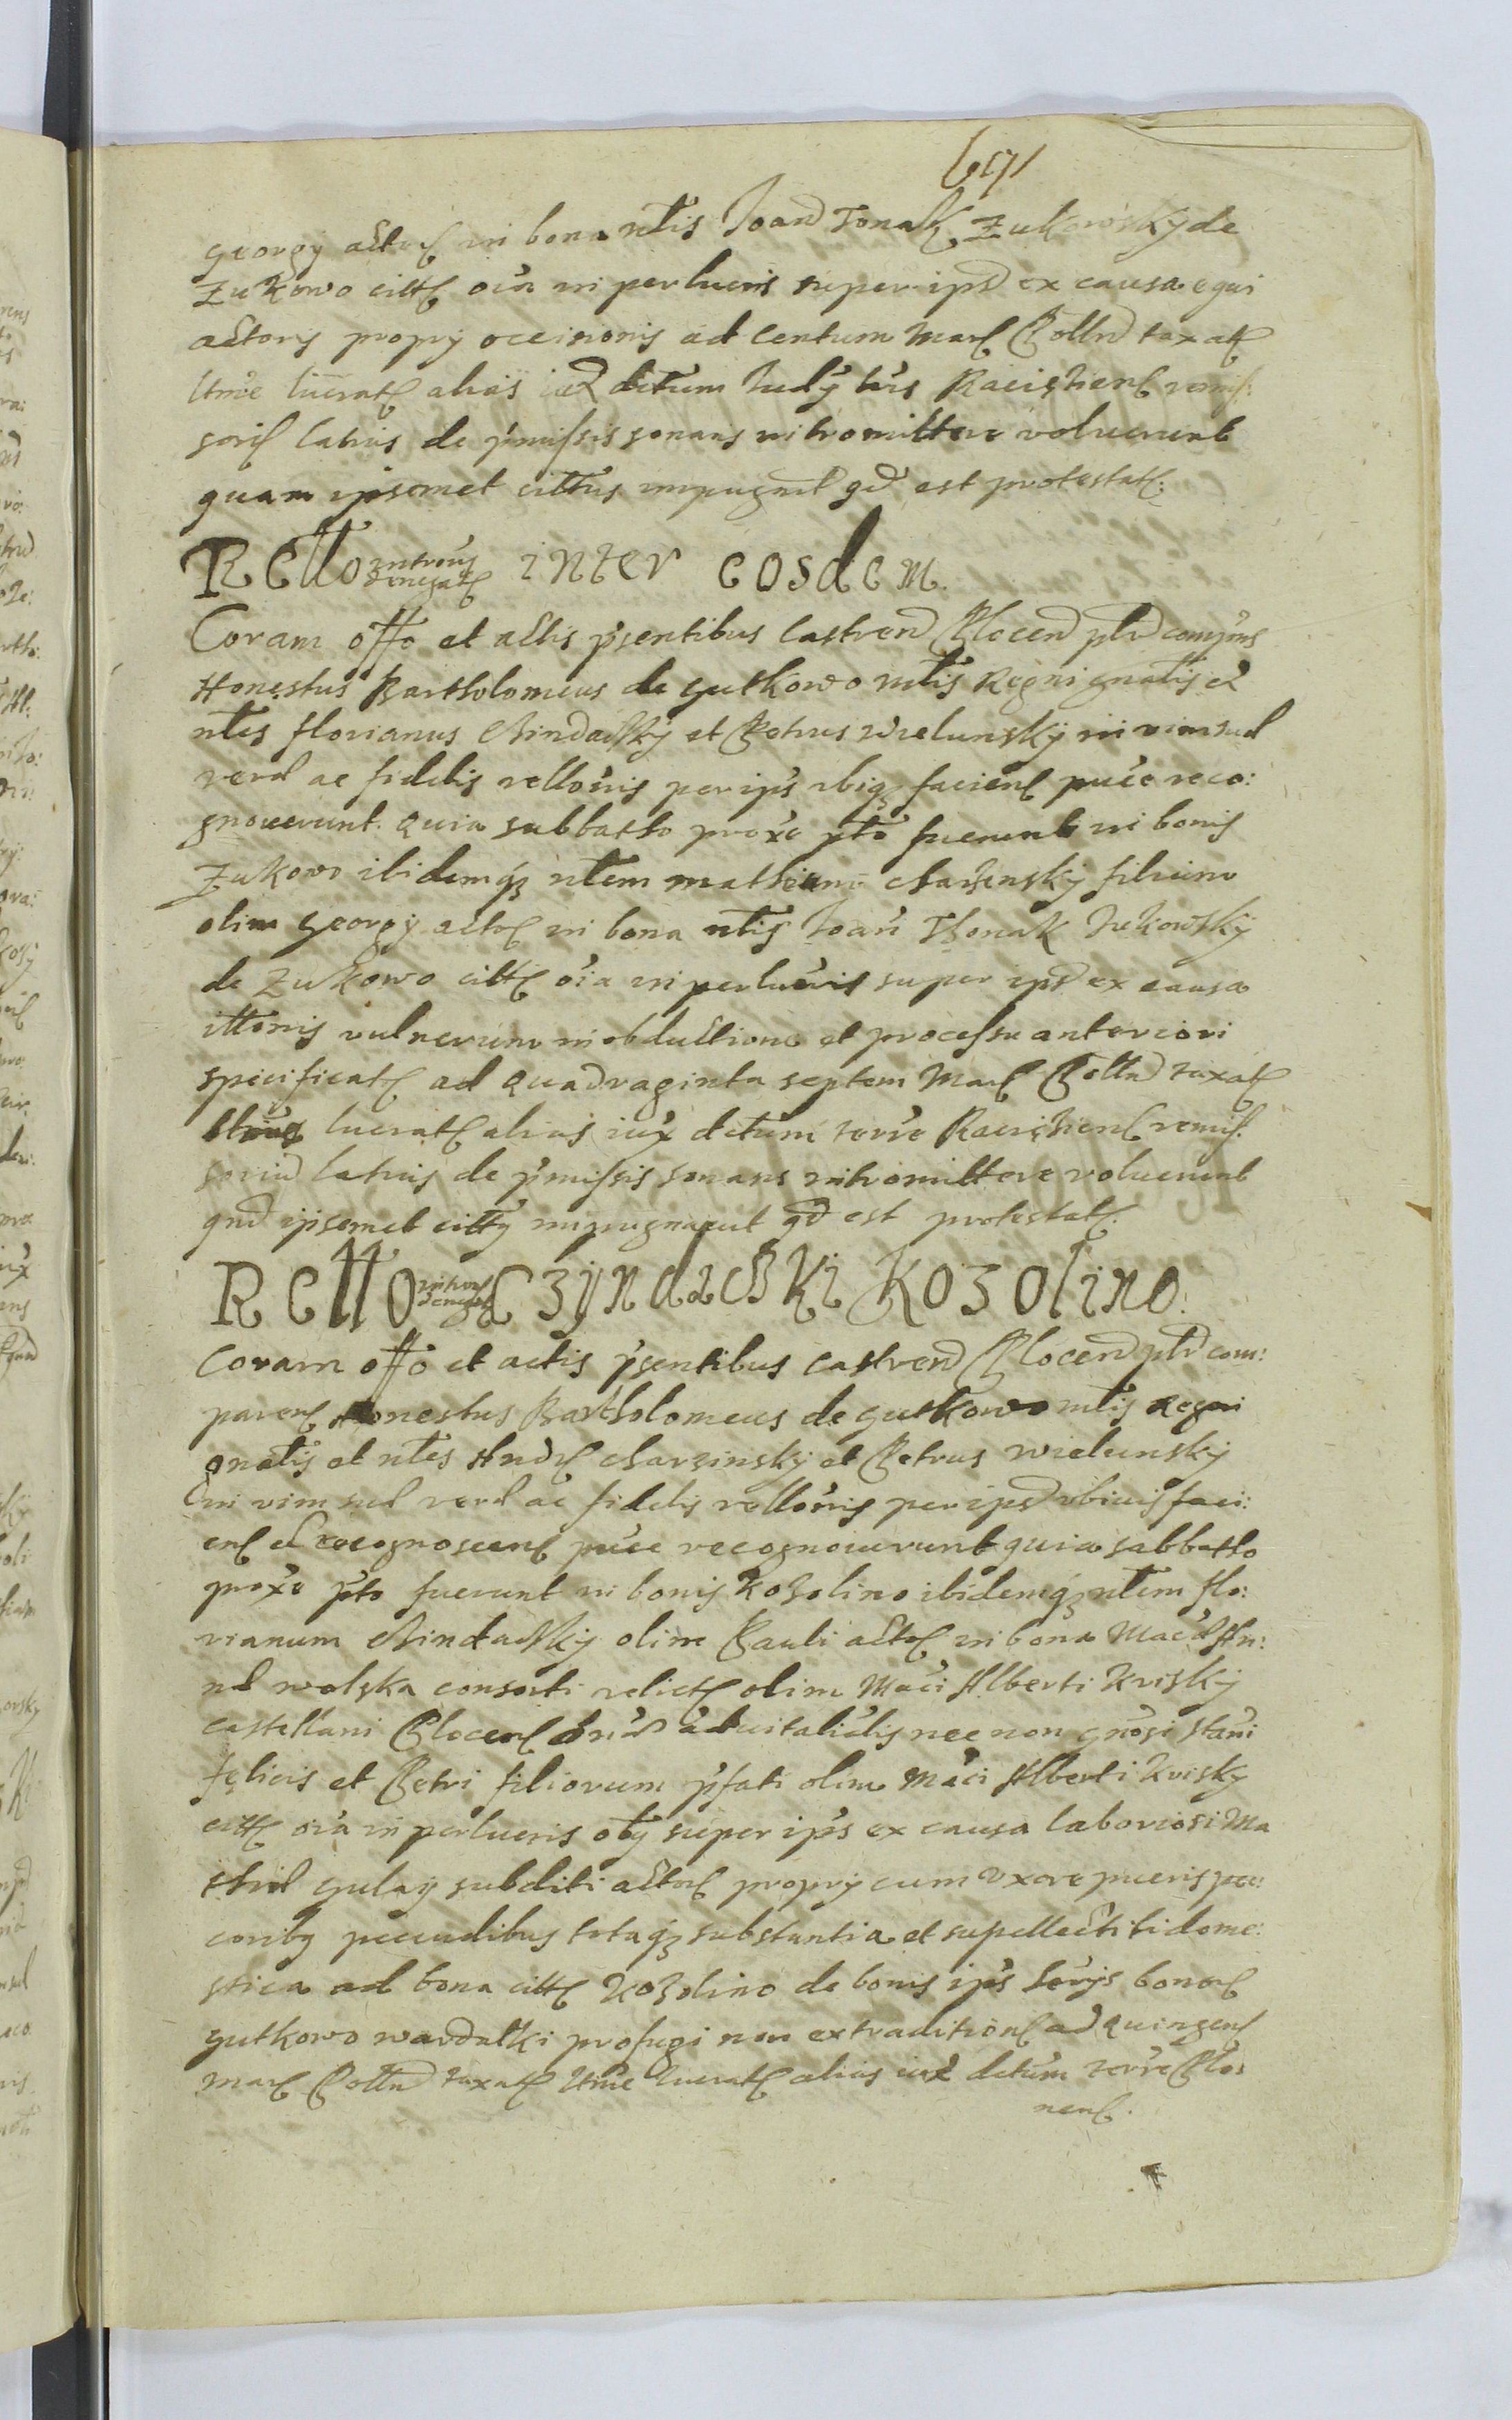 georgy actor in bona nlis Joan Tonak Zukowsky de
Zukowo citt oia in perlucris super ips ex causa equi
actoris propry occisionis ad centum Marc Polln taxat
lucrat alias iux dctum Judy tris Raciążien remis:
soris latius de pmissis sonans intromittere voluerunt
quam ipsemet cittus impugnt qd est protestat.
Rello introms denegat inter eosdem.
Coram offo et actis psentibus Castren Plocen plr compns
Honestus Bartholomeus de gutkowo mlis Regni gnalis et
nles florianus Chindachky et Petrus Wielunsky in vim sue
vere ac fidelis rellonis per ips ibiq facien puce reco:
gnouerunt. quia sabbatho proxe pto fuerunt in bonis
Zukowo ibidemq nlem mathiam Charzensky filium
olim georgy actor in bona nlis Joan Thonak Zukowsky
de Zukowo citt oia in perlucris super ips ex causa
illonis vulnerum in obductione et processu anteriori
specificat ad quadraginta septem Marc Polln taxat
lucrat alias iux dctum terre Raciążien remis:
soriu latius de pmissis sonans intromittere voluerunt
qm ipsemet citty impugnarut qd est protestat.
Rello introm denegat Czyndachki Kozolino.
Coram offo et actis psentibus castren Plocen plr com:
paren Honestus Bartholomeus de gutkowo mlis regni
gnalis et nles Andr Charzinsky et Petrus Wielunsky
in vim sue vere ac fidelis rellonis per ips ibiuis faci:
en et recognoscen puce recognouerunt quia sabbatho
proxe pto fuerunt in bonis Kozolino ibidemq nlem flo:
rianum Chindachky olim Pauli actor in bona Mace An:
ne wolska consorti relict olim Maci Alberti Krisky
castellani Plocen aduitalicis nec non gnosi Stani
felicis et Petri filiorum pfati olim Maci Alberti Krisky
citt oia in perlucris oby super ips ex causa laboriosi Ma
thie gulay subditi actor propry cum vxore pueris pec:
corib pecudibus totaq substantia et supellectili dome:
stica ad bona citt Kozolino de bonis ips bonor
gutkowo wardalki profugi non extradition ad quingen
marc Polln taxat ltime lucrat alias iux dctum terre Plo:
nen.